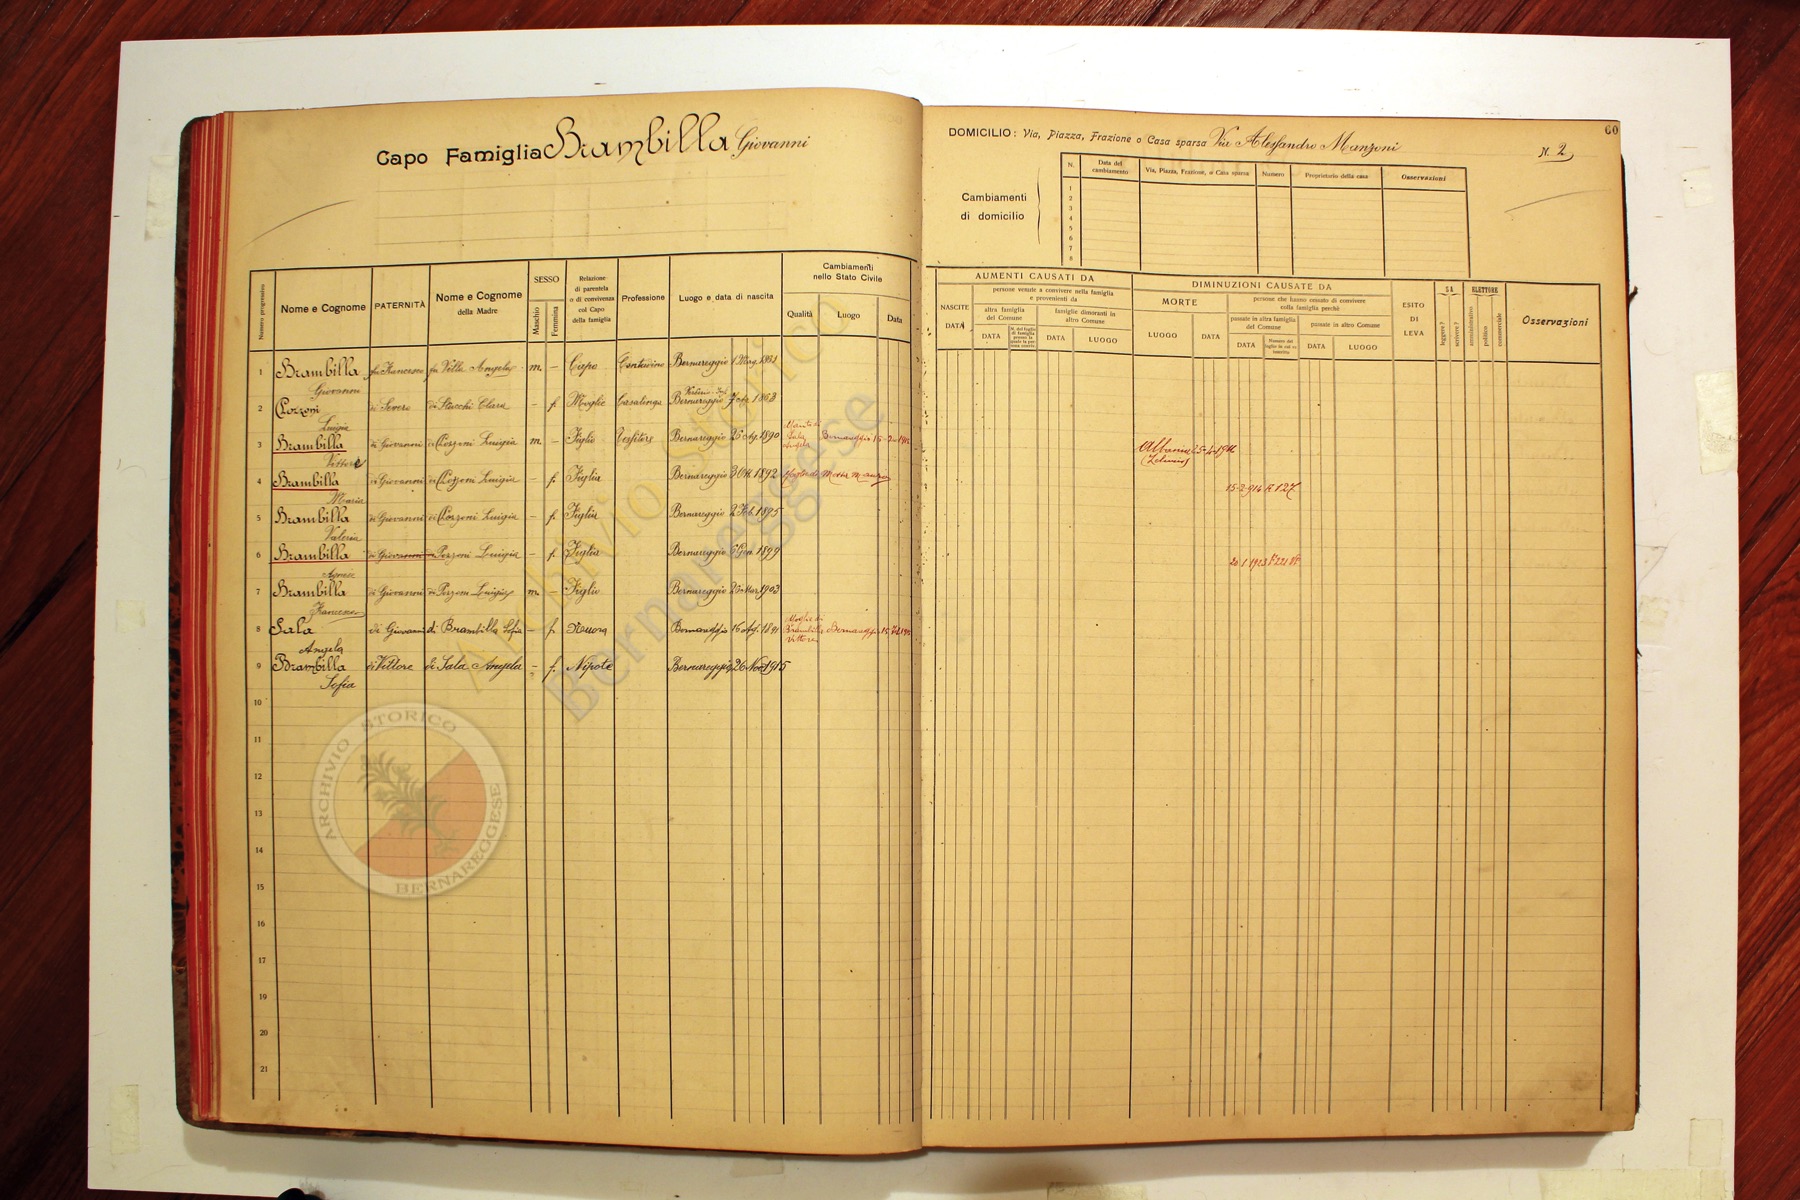 Capo Famiglia Brambilla Giovanni
Numero progressivo
Nome e Cognome
PATERNITÀ
Nome e Cognome
della Madre
SESSO
Maschio
Femmina
Relazione
di parentela
o di convivenza
col Capo
della famiglia
Professione
Luogo e data di nascita
Cambiamenti
nello Stato Civile
Qualità
Luogo
Data
1 Brambilla fu Francesco fu Villa Angela m. – Capo Contadino Bernareggio 1 Mag. 1861
Giovanni
2 Pozzoni di Severo di Stucchi Clara – f. Moglie Casalinga Bernareggio 7 1868
Luigia
3 Brambilla di Giovanni di Pozzoni Luigia m. – Figlio Tessitore Bernareggio 26 Ag. 1890 Marito di Sala Angela Bernareggio 15-2-
Vittore
4 Brambilla di Giovanni di Pozzoni Luigia – f. Figlia Bernareggio 3 Ott. 1892 Moglie di Motta
Maria
5 Brambilla di Giovanni di Pozzoni Luigia – f. Figlia Bernareggio 2 Feb. 1895
Valeria
6 Brambilla di Giovanni di Pozzoni Luigia – f. Figlia Bernareggio 6 Gen. 1899
Agnese
7 Brambilla di Giovanni di Pozzoni Luigia m. – Figlio Bernareggio 25 Mar. 1903
Francesco
8 Sala di Giovanni di Brambilla Sofia – f. Nuora Bernareggio 16 Ag. 1891 Moglie di Brambilla Vittore Bernareggio 15
Angela
9 Brambilla di Vittore di Sala Angela – f. Nipote Bernareggio 26 Nov. 1915
Sofia
10
11
12
13
14
15
16
17
18
19
20
21
60
DOMICILIO: Via, Piazza, Frazione o Casa sparsa Via Alessandro Manzoni N. 2
Cambiamenti
di domicilio
N.
Data del
cambiamento
Via, Piazza, Frazione, o Casa sparsa
Numero
Proprietario della casa
Osservazioni
1
2
3
4
5
6
7
8
AUMENTI CAUSATI DA
NASCITE
DATA
persone venute a convivere nella famiglia
e provenienti da
altra famiglia
del Comune
famiglie dimoranti in
altro Comune
DATA
DATA
LUOGO
DIMINUZIONI CAUSATE DA
MORTE
LUOGO
DATA
persone che hanno cessato di convivere
colla famiglia perchè
passate in altra famiglia
del Comune
passate in altro Comune
DATA
DATA
LUOGO
ESITO
DI
LEVA
SA
leggere?
scrivere?
ELETTORE
amministrativo
politico
commerciale
Osservazioni
Albania
15-2-914 N 127
20 1 1923
Archivio Storico
Bernareggese
ARCHIVIO STORICO
BERNAREGGESE